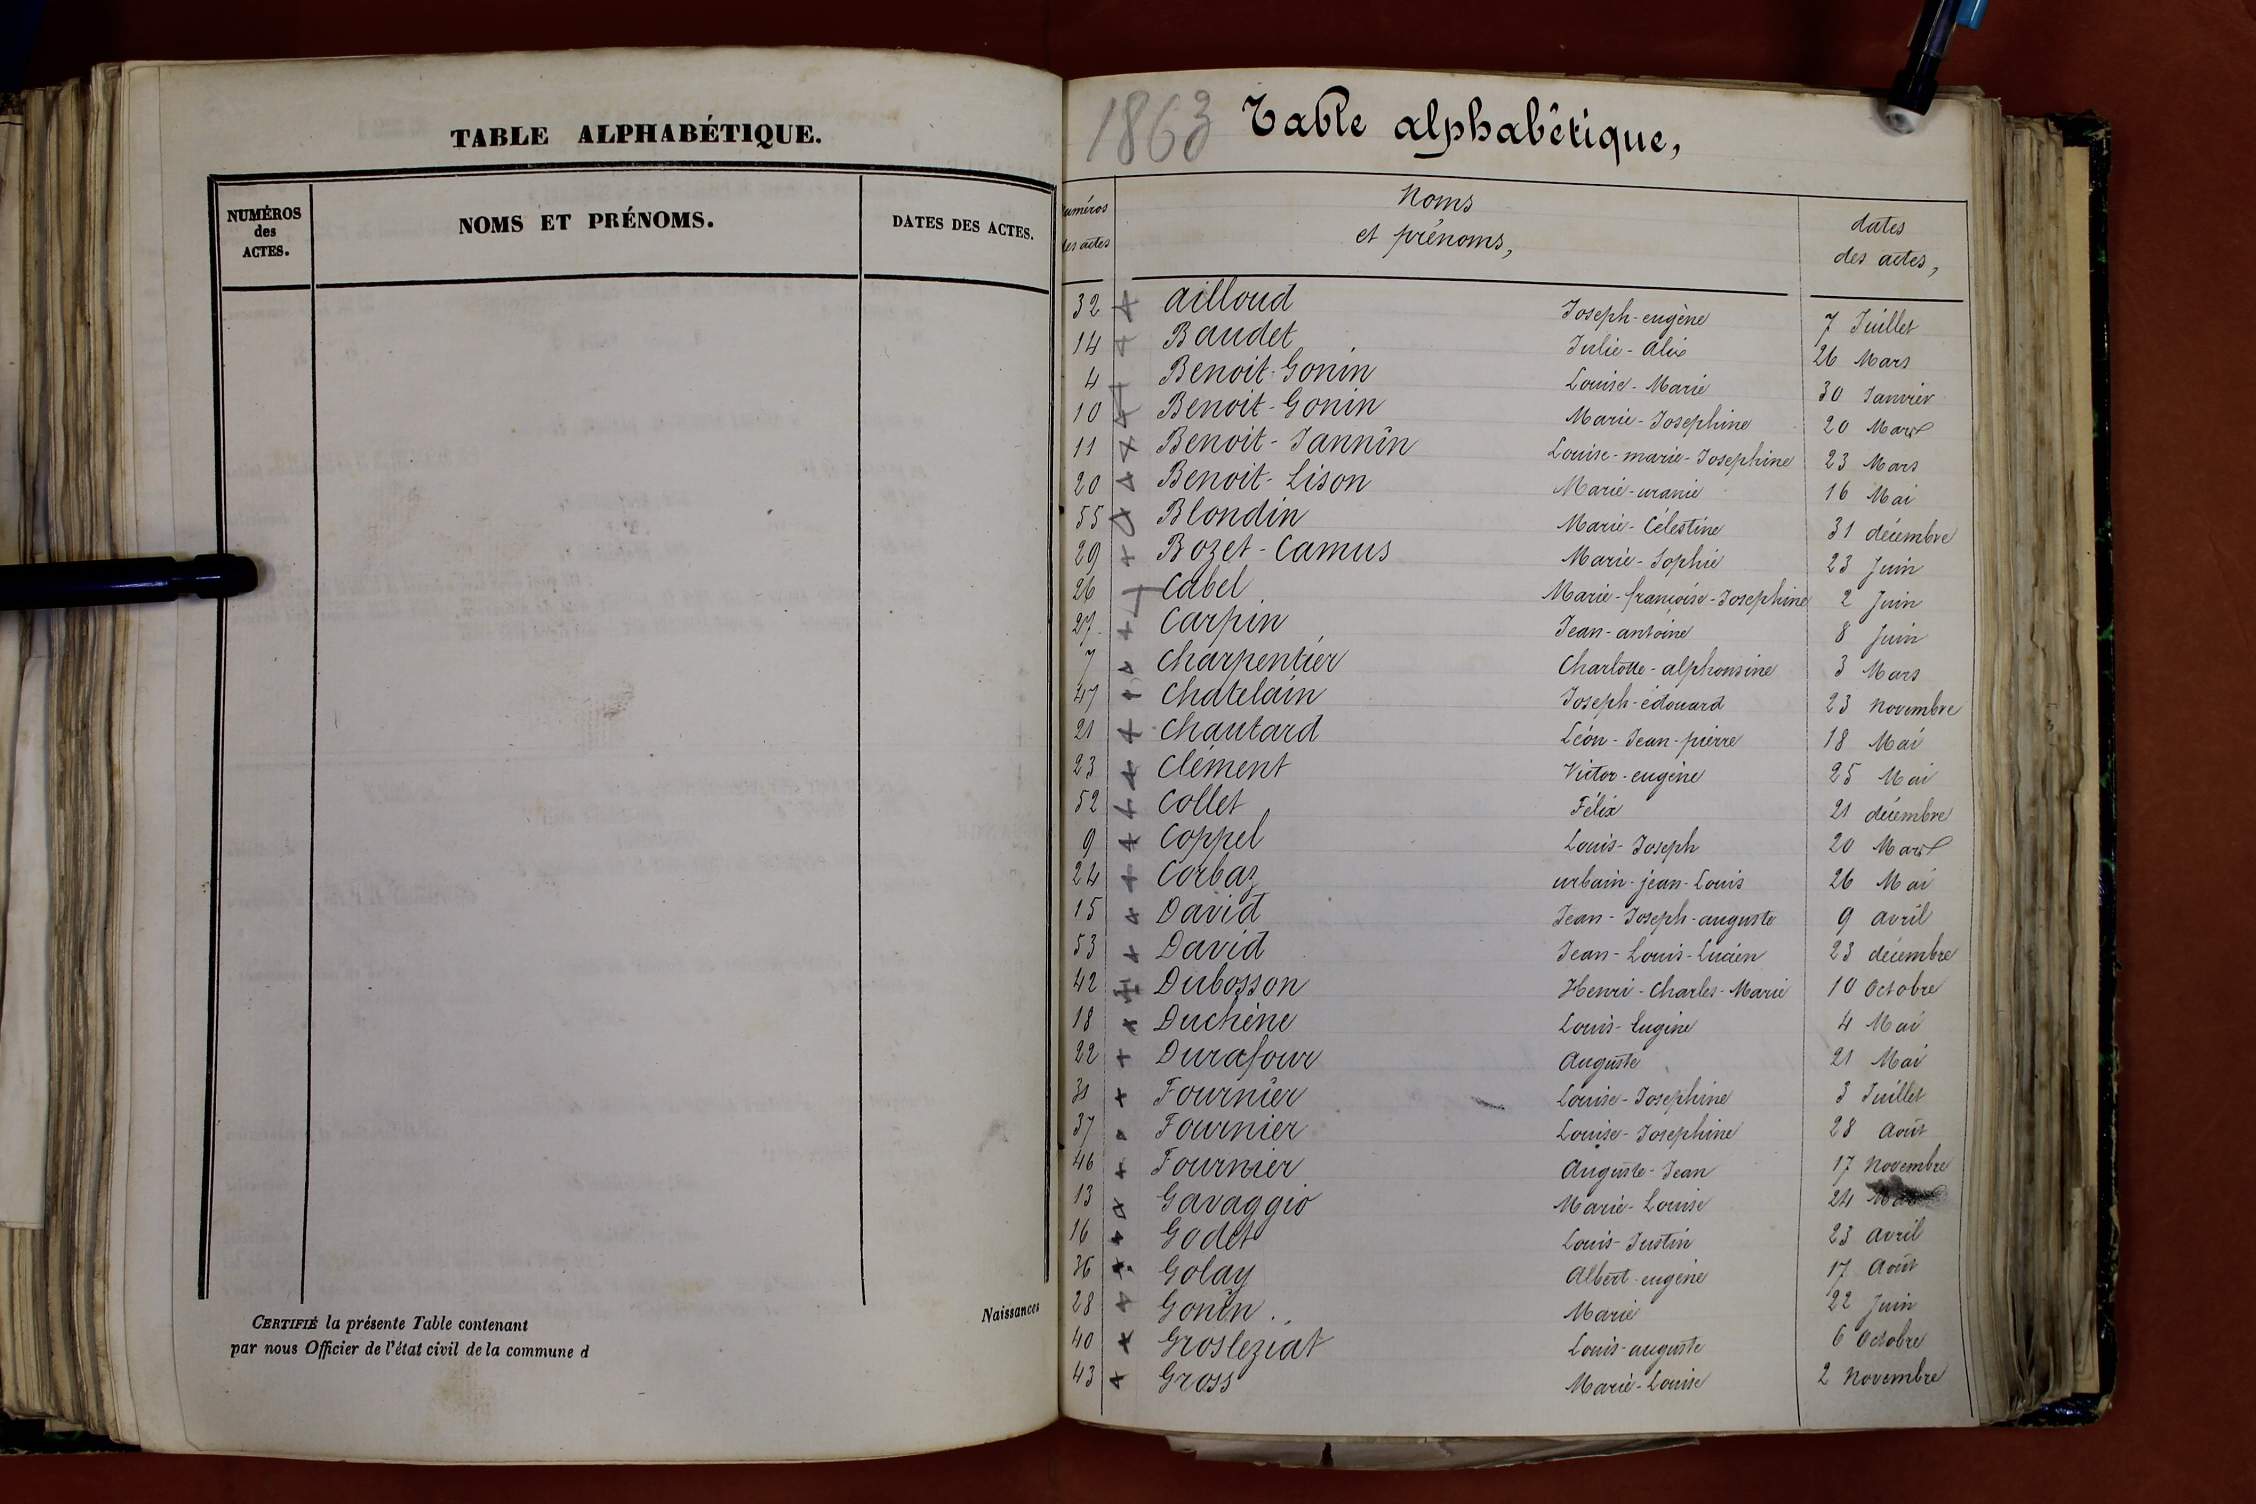 TABLE ALPHABÉTIQUE.
NUMÉROS
des
ACTES.
NOMS ET PRÉNOMS.
DATES DES ACTES.
CERTIFIÉ la présente Table contenant
par nous Officier de l'état civil de la commune d
Naissances
1863 Table alphabétique,
Numéros
des actes
Noms
et prénoms,
dates
des actes,
32 Ailloud Joseph-eugène 7 Juillet
14 Baudet Julie-Alix 26 Mars
4 Benoit-Gonin Louise-Marie 30 Janvier
10 Benoit-Gonin Marie-Josephine 20 Mars
11 Benoit-Jannin Louise-marie-Josephine 23 Mars
20 Benoit-Lison Marie-uranie 16 Mai
55 Blondin Marie-Célestine 31 décembre
29 Bozet-Camus Marie-Sophie 23 Juin
26 Cabel Marie-françoise-Josephine 2 Juin
27 Carpin Jean-antoine 8 Juin
7 Charpentier Charlotte-alphonsine 3 Mars
47 Chatelain Joseph-édouard 23 novembre
21 Chautard Léon-Jean-pierre 18 Mai
23 Clément Victor-eugène 25 Mai
52 Collet Félix 21 décembre
9 Coppel Louis-Joseph 20 Mars
24 Corbaz urbain-jean-Louis 26 Mai
15 David Jean-Joseph-auguste 9 avril
53 David Jean-Louis-Lucien 23 décembre
42 Dubosson Henri-Charles-Marie 10 Octobre
18 Duchêne Louis-Eugène 4 Mai
22 Durafour Auguste 21 Mai
31 Fournier Louise-Josephine 3 Juillet
37 Fournier Louise-Josephine 28 Août
46 Fournier Auguste-Jean 17 Novembre
13 Gavaggio Marie-Louise 24 Mars
16 Godet Louis-Justin 23 avril
36 Golay Albert-eugène 17 Août
28 Gonin Marie 22 Juin
40 Grosleziat Louis-auguste 6 Octobre
43 Gross Marie-Louise 2 Novembre